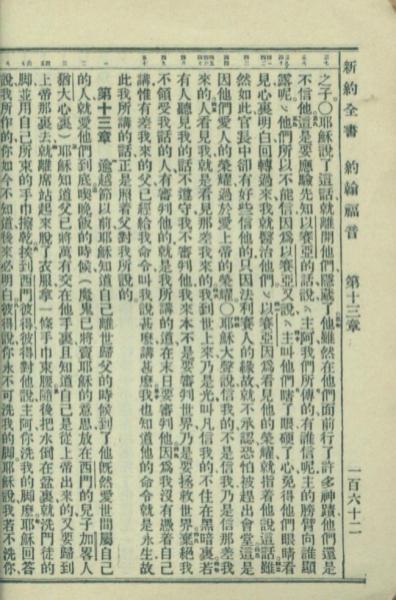 新約全書 約翰福音 第十三章 一百六十二
之子○耶穌說了這話就離開他們隱藏了他雖然在他們面前行了許多神蹟他們還是
不信他這是要應驗先知以賽亞的話說主阿我們所傳的有誰信呢主的膀臂向誰顯
露呢他們所以不能信因爲以賽亞又說主叫他們瞎了眼硬了心免得他們眼睛看
見心裏明白回轉過來我就醫治他們以賽亞因爲看見他的榮耀就指着他說這話雖
然如此官長中却有好些信他的只因法利賽人的緣故就不承認恐怕被趕出會堂這是
因他們愛人的榮耀過於愛上帝的榮耀○耶穌大聲說信我的不是信我乃是信那差我
來的人看見我就是看見那差我來的我到世上來乃是光叫凡信我的不住在黑暗裏若
有人聽見我的話不遵守我不審判他我來本不是要審判世界乃是要拯救世界棄絕我
不領受我話的人有審判他的就是我所講的道在末日要審判他因爲我沒有憑着自己
講惟有差我來的父已經給我命令叫我說甚麽講甚麽我也知道他的命令就是永生故
此我所講的話正是照着父對我所說的
第十三章 逾越節以前耶穌知道自己離世歸父的時候到了他旣然愛世間屬自己
的人就愛他們到底喫晚飯的時候（魔鬼已將賣耶穌的意思放在西門的兒子加畧人
猶大心裏）耶穌知道父已將萬有交在他手裏且知道自己是從上帝出來的又要歸到
上帝那裏去就離席站起來脫了衣服拿一條手巾束腰隨後把水倒在盆裏就洗門徒的
脚並用自己所束的手巾擦乾挨到西門彼得彼得對他說主阿你洗我的脚麽耶穌回答
說我所作的你如今不知道後來必明白彼得說你永不可洗我的脚耶穌說我若不洗你